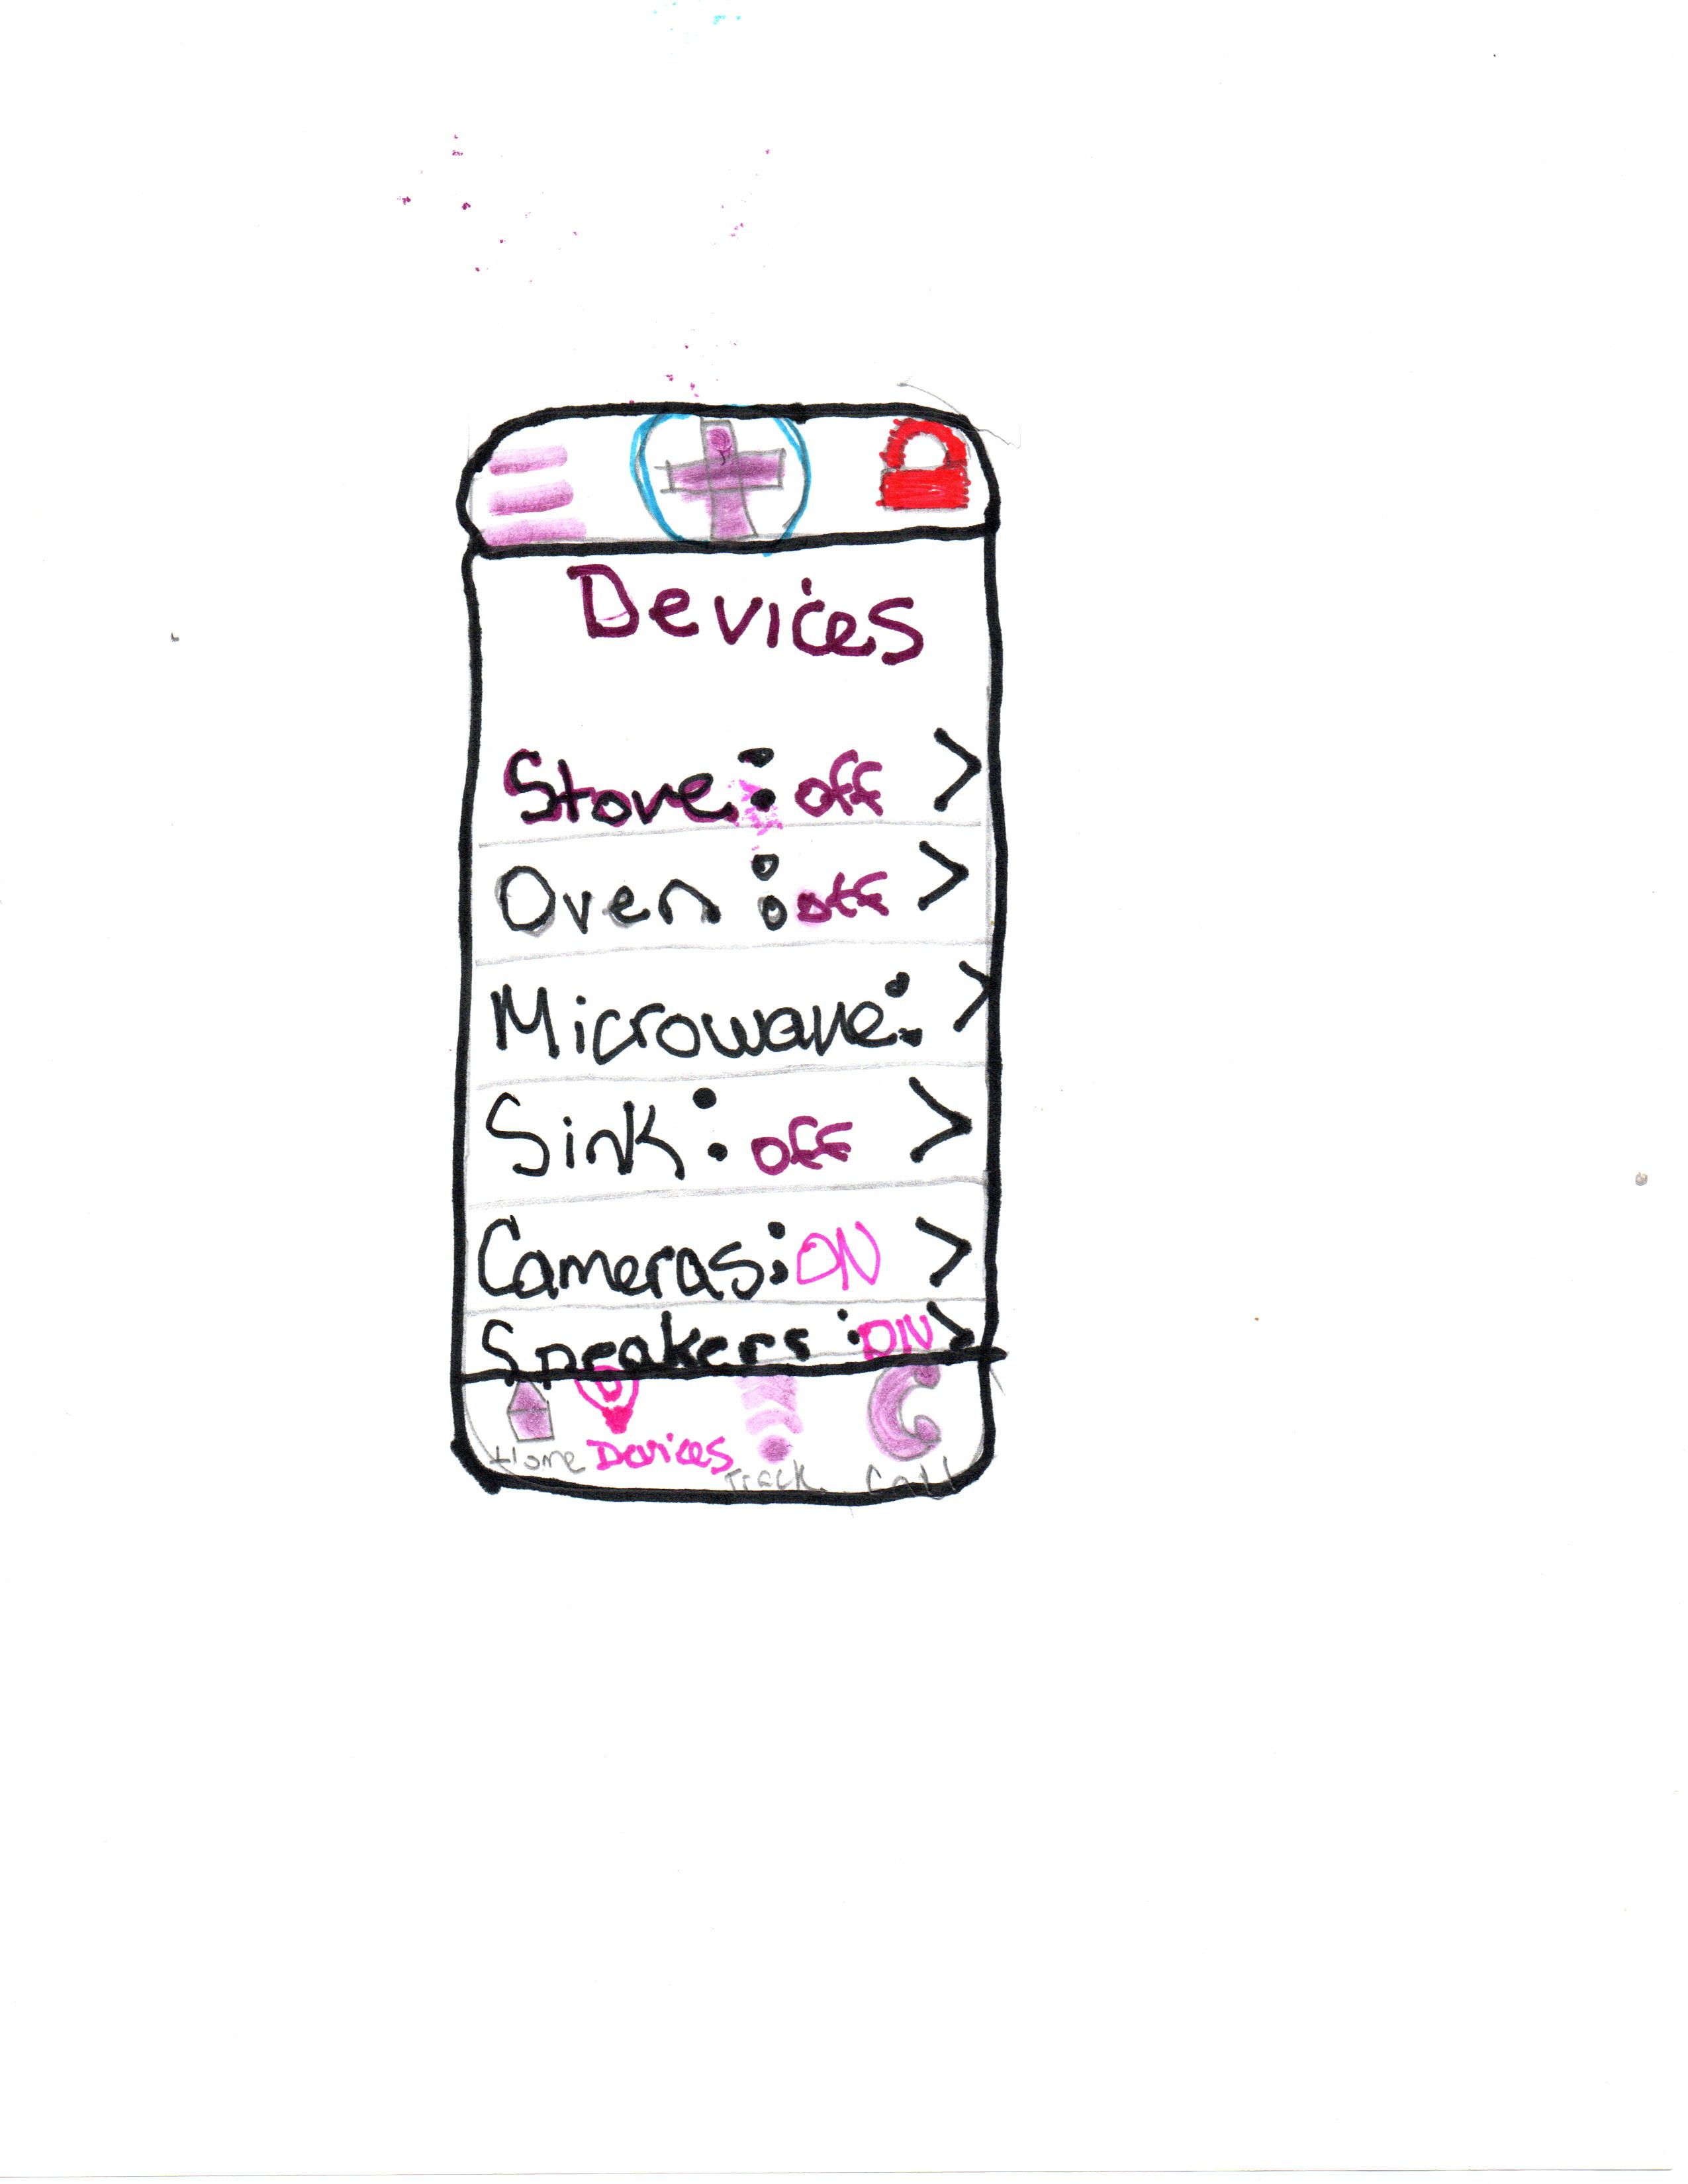 Devices
Stove: off >
Oven: off >
Microwave: >
Sink: off >
Cameras: ON >
Speakers: ON >
Home Devices Track Call